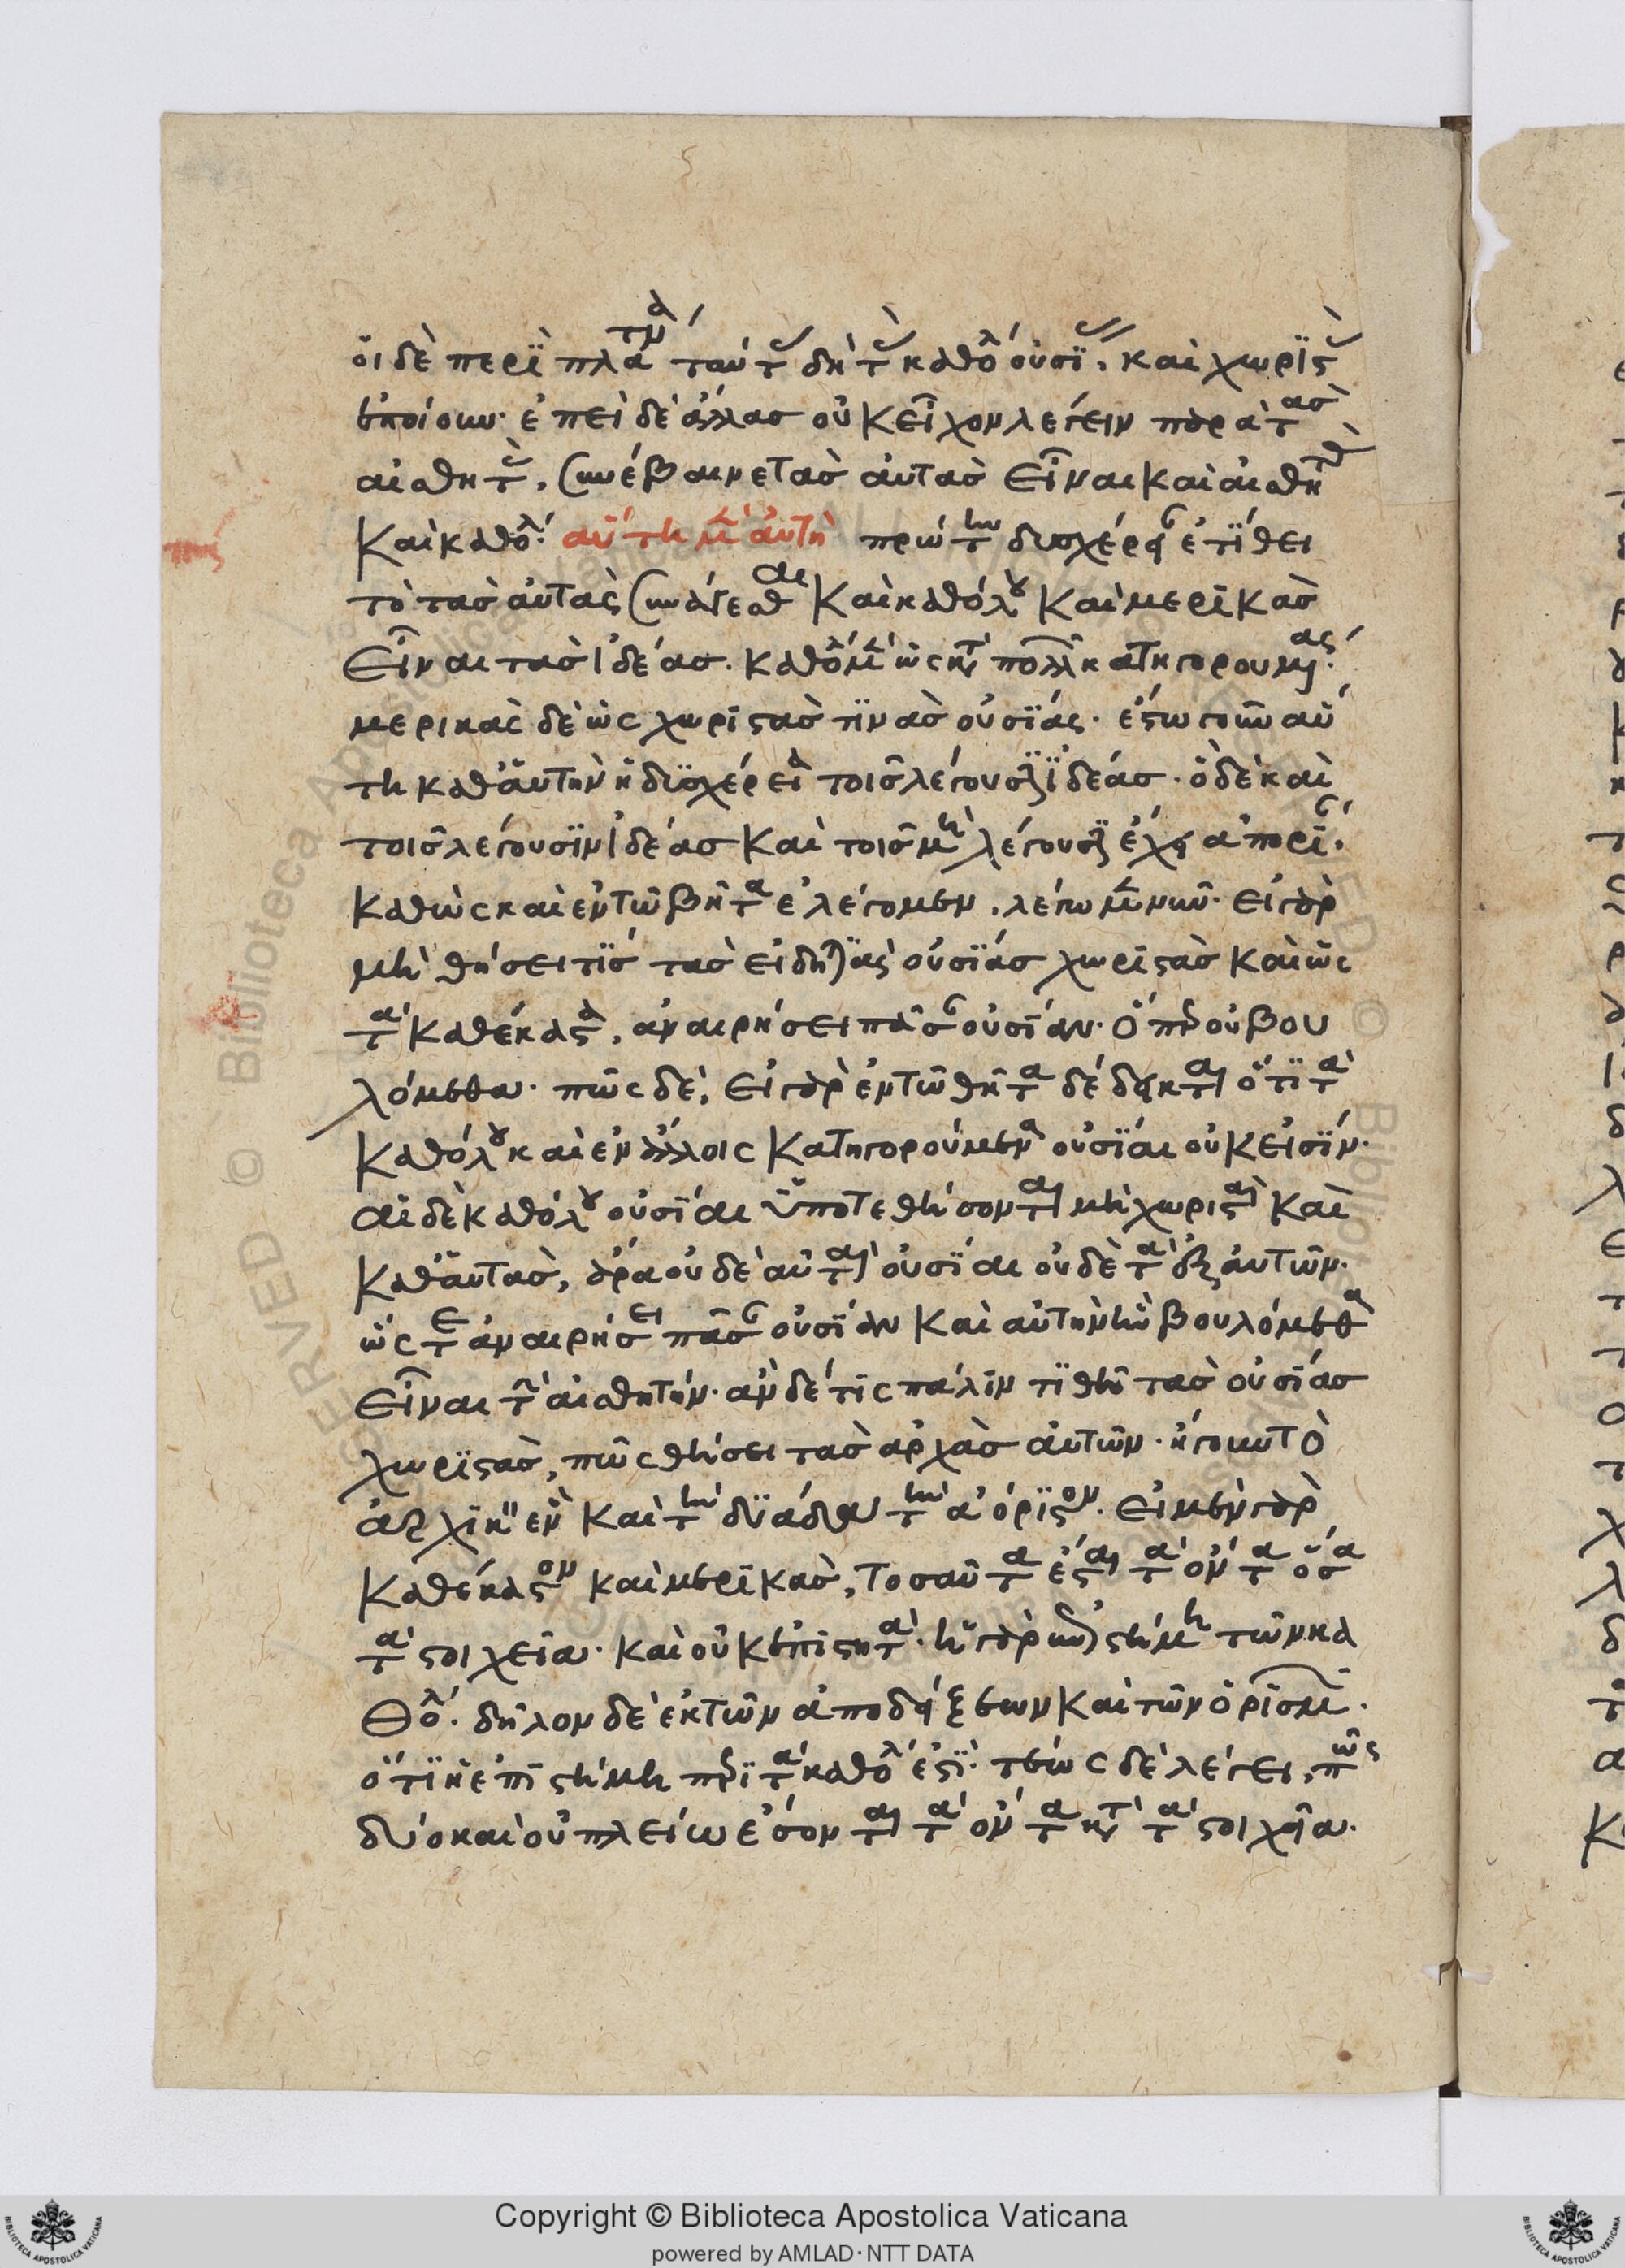 οἱ δὲ περὶ πλάτωνα ταύτας δὴ τὰς καθόλου οὐσίας, καὶ χωριστὰς
ἐποίουν· ἐπεὶ δὲ ἄλλας οὐκ εἶχον λέγειν παρὰ τὰς
αἰσθητὰς, συνέβαινε τὰς αὐτὰς εἶναι καὶ αἰσθητὰς
καὶ καθόλου· αὕτη μὲν αὐτὴ πρώτην δυσχέρειαν ἐτίθει
τὸ τὰς αὐτὰς συνάγεσθαι καὶ καθόλου καὶ μερικὰς
εἶναι τὰς ἰδέας. καθόλου μὲν ὡς κατὰ πολλῶν κατηγορουμένας·
μερικὰς δὲ ὡς χωριστάς τινας οὐσίας. ἔστω γοῦν αὕ
τη καθ' αὑτὴν ἡ δυσχέρεια τοῖς λέγουσιν ἰδέας. ὃ δὲ καὶ
τοῖς λέγουσιν ἰδέας καὶ τοῖς μὴ λέγουσιν ἔχει ἀπορίαν.
καθὼς καὶ ἐν τῷ βῆτα ἐλέγομεν, λέγω μὲν νῦν· εἰ γὰρ
μὴ θήσει τίς τὰς εἰδητικὰς οὐσίας χωριστὰς καὶ ὡς
τὰ καθέκαστα, ἀναιρήσει πᾶσαν οὐσίαν· ὅπερ οὐ βου
λόμεθα· πῶς δέ, εἰ γὰρ ἐν τῷ ζῆτα δέδεικται ὅτι τὰ
καθόλου καὶ ἐν ἄλλοις κατηγορούμενα οὐσίαι οὐκ εἰσίν·
αἱ δὲ καθόλου οὐσίαι ὑποτεθήσονται μὴ χωρισταὶ καὶ
καθ' αὑτὰς, ἄρα οὐδὲ αὗται οὐσίαι οὐδὲ τὰ ἐξ αὐτῶν.
ὥς τε ἀναιρήσει πᾶσαν οὐσίαν καὶ αὐτὴν ἣν βουλόμεθα
εἶναι τὴν αἰσθητήν. ἂν δέ τις πάλιν τιθῇ τὰς οὐσίας
χωριστὰς, πῶς θήσει τὰς ἀρχὰς αὐτῶν· ἤγουν τὸ
ἀρχικὸν ἓν καὶ τὴν δυάδα τὴν ἀόριστον. εἰ μὲν γὰρ
καθέκαστον καὶ μερικὰς, τοσαῦτα ἔσται τὰ ὄντα ὅσα
τὰ στοιχεῖα. καὶ οὐκ ἐπιστητά· ἡ γὰρ ἐπιστήμη τῶν κα
θόλου. δῆλον δὲ ἐκ τῶν ἀποδείξεων καὶ τῶν ὁρισμῶν.
ὅτι ἡ ἐπιστήμη περὶ τὰ καθόλου ἐστί· τέως δὲ λέγει, πῶς
δύο καὶ οὐ πλείω ἔσονται τὰ ὄντα κατὰ τὰ στοιχεῖα.
Copyright © Biblioteca Apostolica Vaticana
powered by AMLAD·NTT DATA